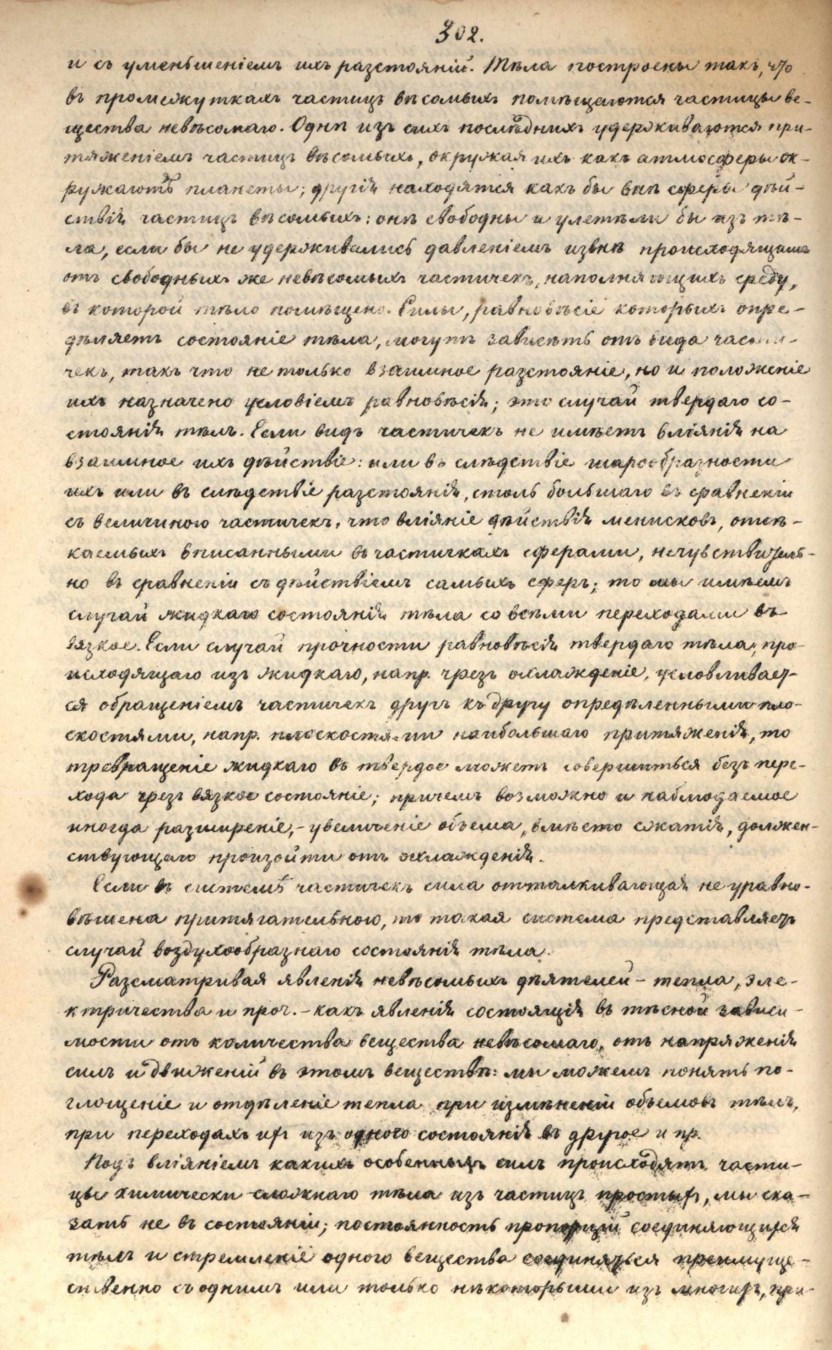 302.
и съ уменьшеніемъ ихъ разстояній. Тѣла построены такъ, что
въ промежуткахъ частицъ вѣсомыхъ помѣщаются частицы ве-
щества невѣсомаго. Однѣ изъ сихъ послѣднихъ удерживаются при-
тяженіемъ частицъ вѣсомыхъ, окружая ихъ какъ атмосферы ок-
ружаютъ планеты; другія находятся какъ бы внѣ сферы дѣй-
ствія частицъ вѣсомыхъ: онѣ свободны и улетѣли бы изъ тѣ-
ла, если бы не удерживались давленіемъ извнѣ происходящимъ
отъ свободныхъ же невѣсомыхъ частичекъ, наполняющихъ среду,
въ которой тѣло помѣщено. Силы, равновѣсіе которыхъ опре-
дѣляетъ состояніе тѣла, могутъ зависѣть отъ вида части-
чекъ, такъ что не только взаимное разстояніе, но и положеніе
ихъ назначено условіемъ равновѣсія; это случай твердаго со-
стоянія тѣлъ. Если видъ частичекъ не имѣетъ вліянія на
взаимное ихъ дѣйствіе: или въ слѣдствіе шарообразности
ихъ или въ слѣдствіе разстоянія, столь большаго въ сравненіи
съ величиною частичекъ, что вліяніе дѣйствія менисковъ, отсѣ-
каемыхъ вписанными въ частичкахъ сферами, нечувствитель-
но въ сравненіи съ дѣйствіемъ самыхъ сферъ; то мы имѣемъ
случай жидкаго состоянія тѣла со всѣми переходами въ
вязкое. Если случай прочности равновѣсія твердаго тѣла, про-
исходящаго изъ жидкаго, напр. чрезъ охлажденіе, условливает-
ся обращеніемъ частичекъ другъ къ другу опредѣленными пло-
скостями, напр. плоскостями наибольшаго притяженія, то
превращеніе жидкаго въ твердое можетъ совершиться безъ пере-
хода чрезъ вязкое состояніе; причемъ возможно и наблюдаемое
иногда разширеніе,- увеличеніе объема, вмѣсто сжатія, должен-
ствующаго произойти отъ охлажденія.
Если въ системѣ частичекъ сила отталкивающая не уравно-
вѣшена притягательною, то такая система представляетъ
случай воздухообразнаго состоянія тѣла.
Разсматривая явленія невѣсомыхъ дѣятелей - тепла, эле-
ктричества и проч. - какъ явленія состоящія въ тѣсной зависи-
мости отъ количества вещества невѣсомаго, отъ напряженія
силъ и движеній въ этомъ веществѣ: мы можемъ понять по-
глощеніе и отдѣленіе тепла при измѣненіи объемовъ тѣлъ,
при переходахъ ихъ изъ одного состоянія въ другое и пр.
Подъ вліяніемъ какихъ особенныхъ силъ происходятъ части-
цы химически сложнаго тѣла изъ частицъ простыхъ, мы ска-
зать не въ состояніи; постоянность пропорцій соединяющихся
тѣлъ и стремленіе одного вещества соединяться преимуще-
ственно съ однимъ или только нѣкоторыми изъ многихъ, при-